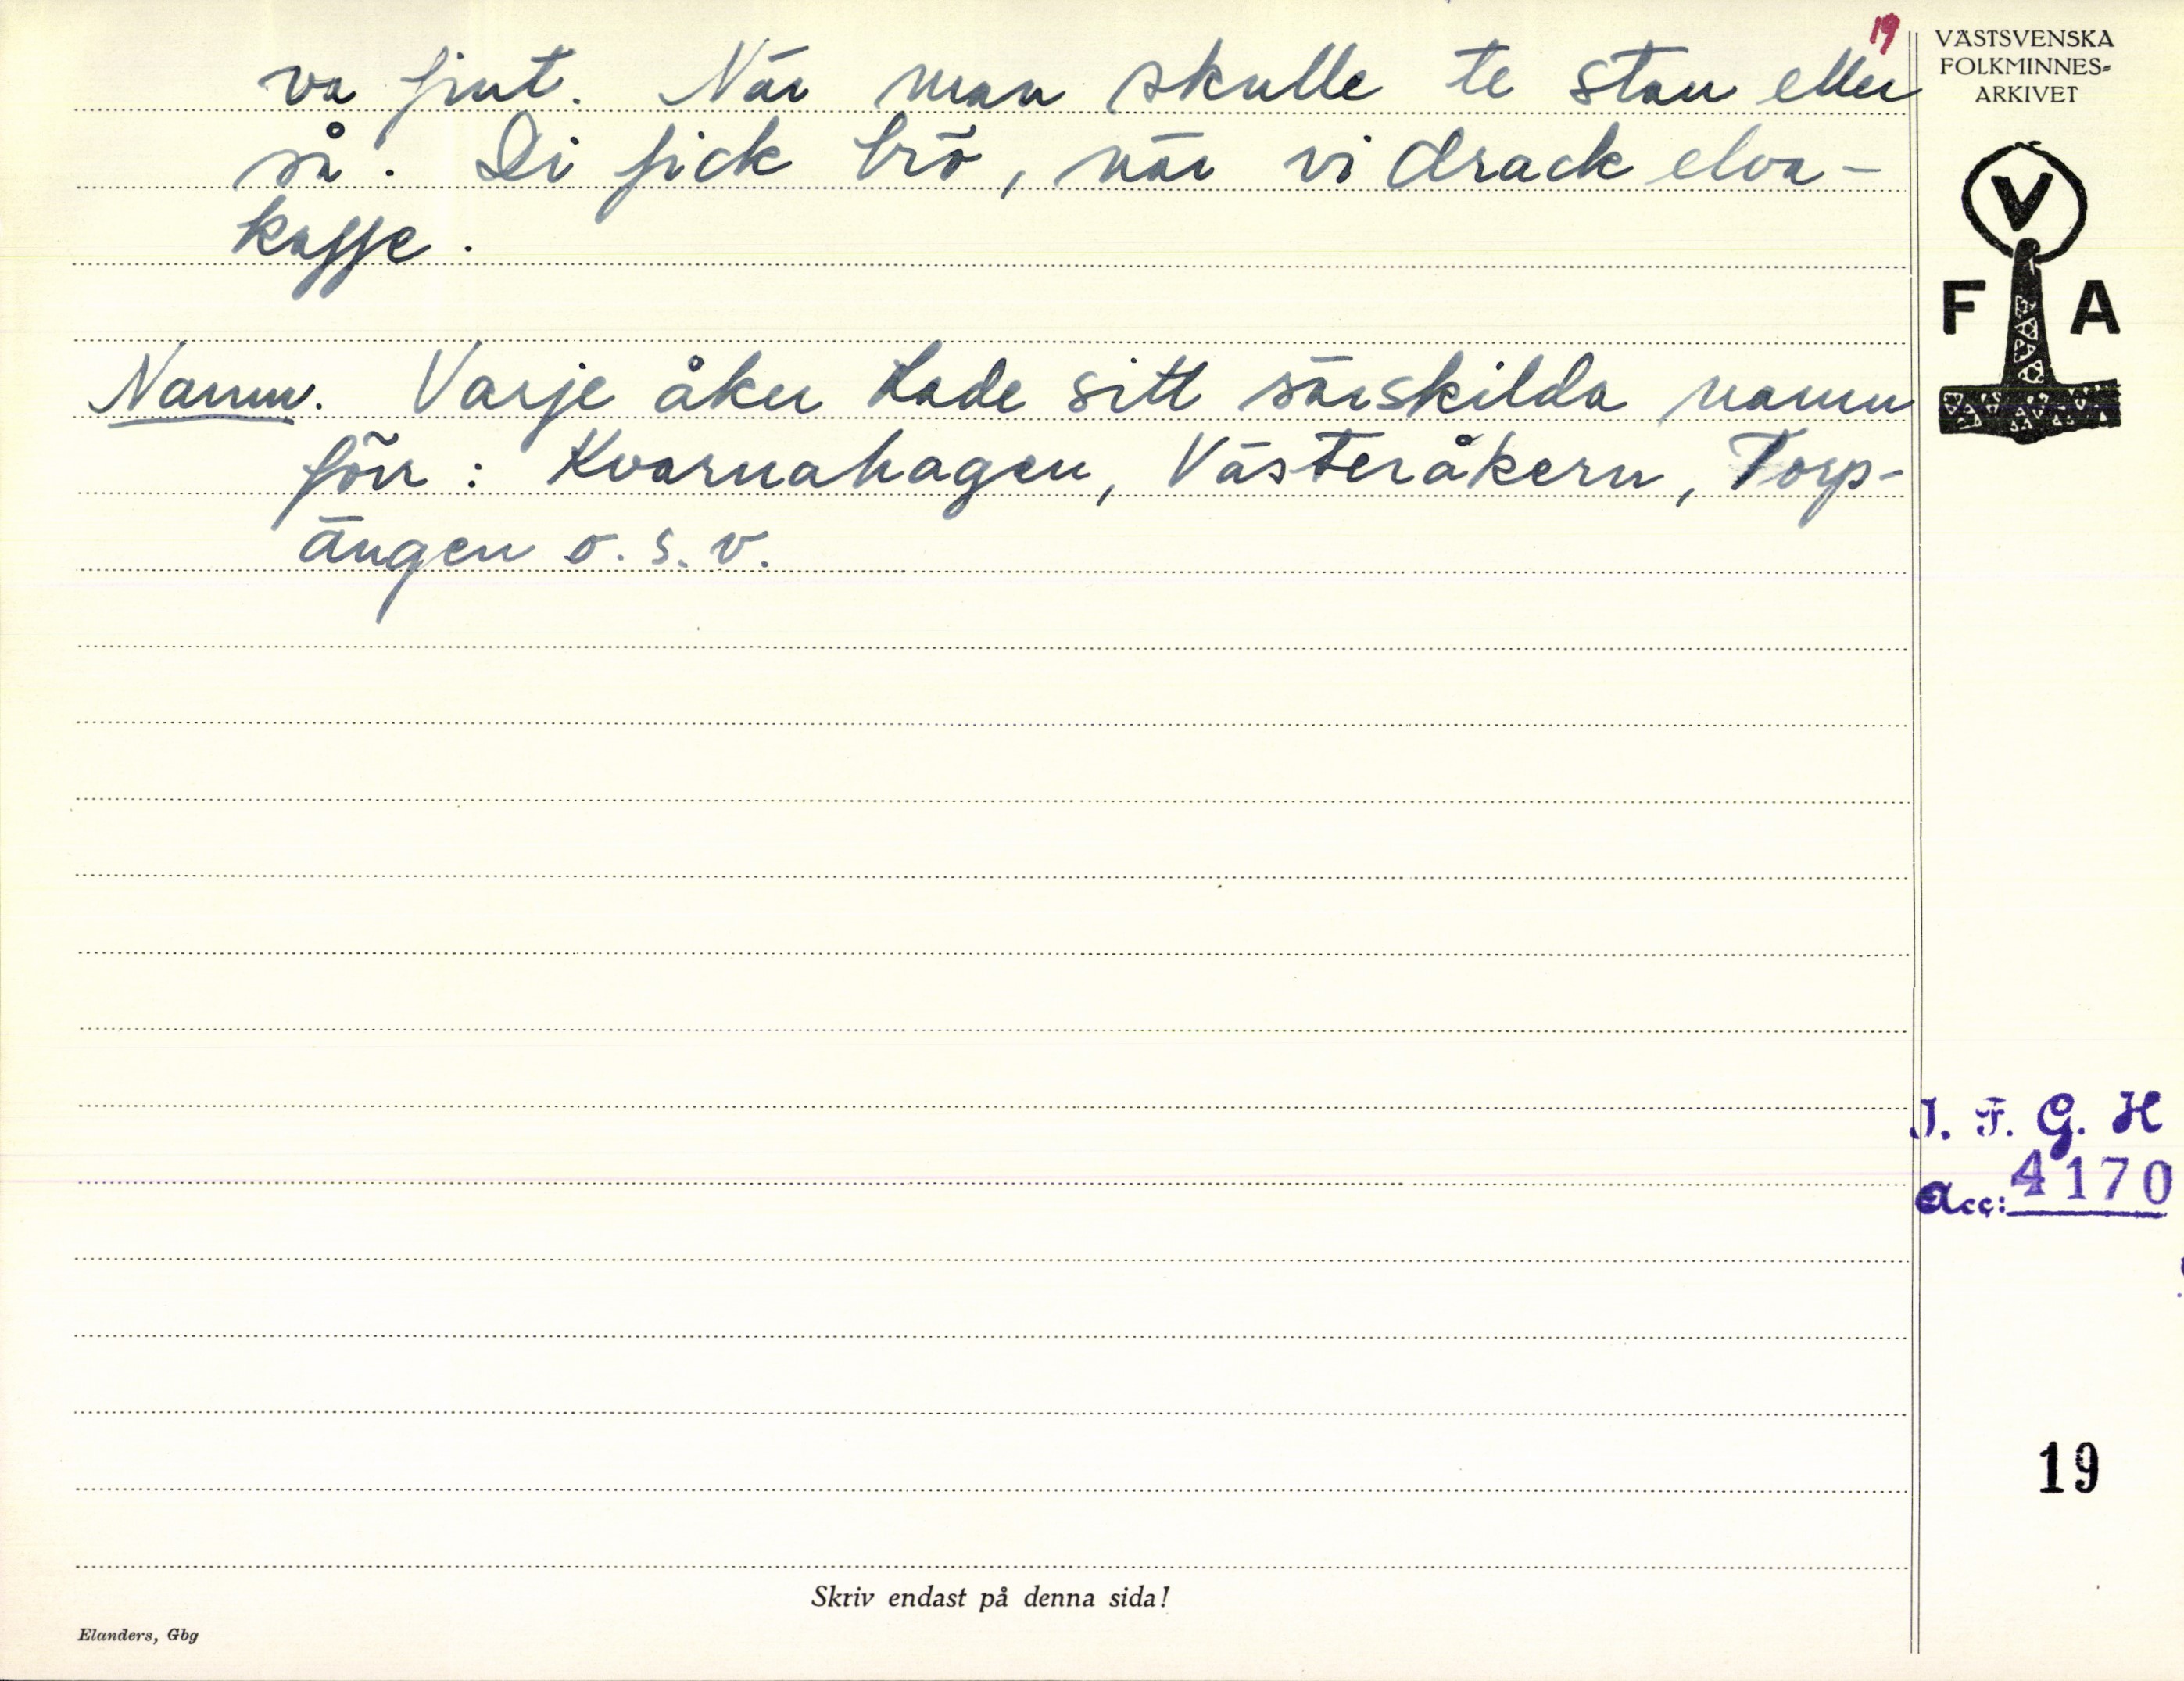 19
va fint. När man skulle te stan eller
så. Di fick brö, när vi drack elva-
kaffe.
Namn. Varje åker hade sitt särskilda namn
förr: Kvarnahagen, Västeråkern, Torp-
ängen o.s.v.
VÄSTSVENSKA
FOLKMINNES-
ARKIVET
V
F A
I. F. G. H
Acc: 4170
19
Skriv endast på denna sida!
Elanders, Gbg